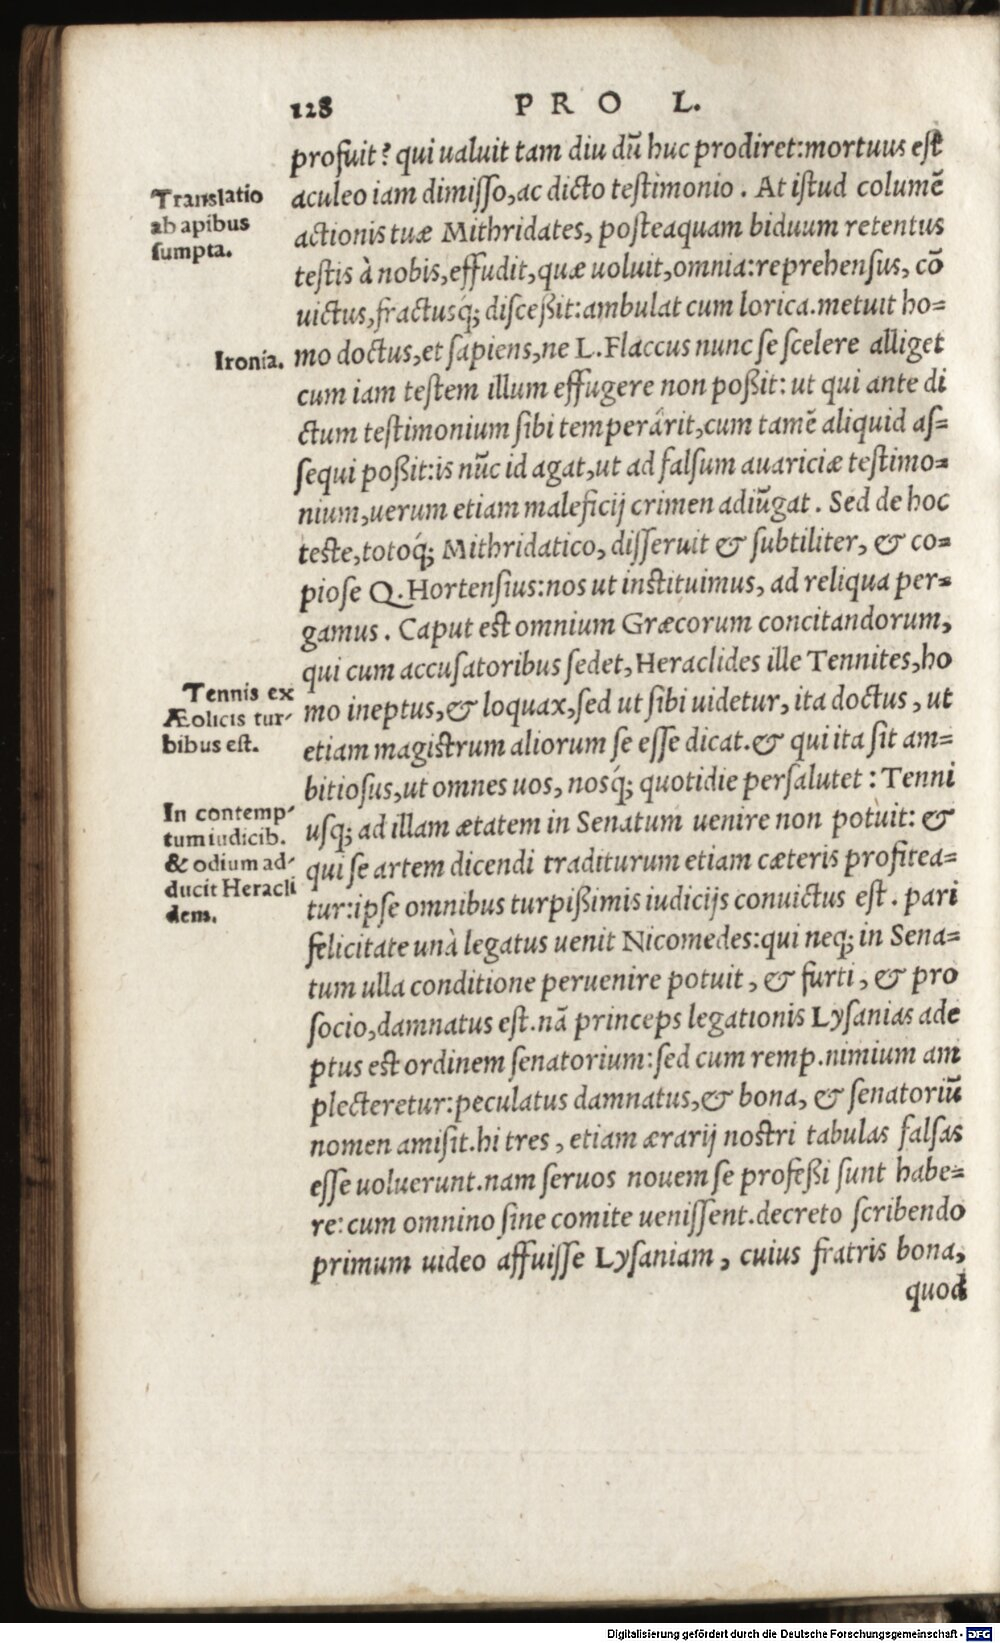 128 PRO L.
profuit? qui ualuit tam diu dū huc prodiret:mortuus eſt
aculeo iam dimiſſo,ac dicto teſtimonio. At iſtud columē
actionis tuæ Mithridates, poſteaquam biduum retentus
teſtis à nobis,effudit,quæ uoluit,omnia:reprehenſus, cō
uictus,fractusq́; diſceßit:ambulat cum lorica.metuit ho=
mo doctus,et ſapiens,ne L.Flaccus nunc ſe ſcelere alliget
cum iam teſtem illum effugere non poßit: ut qui ante di
ctum teſtimonium ſibi temperârit,cum tamē aliquid aſ=
ſequi poßit:is nūc id agat,ut ad falſum auariciæ teſtimo=
nium,uerum etiam maleficij crimen adiūgat. Sed de hoc
teſte,totoq́; Mithridatico, diſſeruit & ſubtiliter, & co=
pioſe Q.Hortenſius:nos ut inſtituimus, ad reliqua per=
gamus. Caput eſt omnium Græcorum concitandorum,
qui cum accuſatoribus ſedet,Heraclides ille Tennites,ho
mo ineptus,& loquax,ſed ut ſibi uidetur, ita doctus, ut
etiam magiſtrum aliorum ſe eſſe dicat.& qui ita ſit am=
bitioſus,ut omnes uos, nosq́; quotidie perſalutet: Tenni
uſq; ad illam ætatem in Senatum uenire non potuit: &
qui ſe artem dicendi traditurum etiam cæteris profitea=
tur:ipſe omnibus turpißimis iudicijs conuictus eſt. pari
felicitate unà legatus uenit Nicomedes:qui neq; in Sena=
tum ulla conditione peruenire potuit, & furti, & pro
ſocio,damnatus eſt.nā princeps legationis Lyſanias ade
ptus eſt ordinem ſenatorium:ſed cum remp.nimium am
plecteretur:peculatus damnatus,& bona, & ſenatoriū
nomen amiſit.hi tres, etiam ærarij noſtri tabulas falſas
eſſe uoluerunt.nam ſeruos nouem ſe profeßi ſunt habe=
re:cum omnino ſine comite ueniſſent.decreto ſcribendo
primum uideo affuiſſe Lyſaniam, cuius fratris bona,
quod
Translatio
ab apibus
ſumpta.
Ironia.
Tennis ex
Æolicis tur-
bibus eſt.
In contemp-
tum iudicib.
& odium ad-
ducit Heracli
dem.
Digitalisierung gefördert durch die Deutsche Forschungsgemeinschaft - DFG